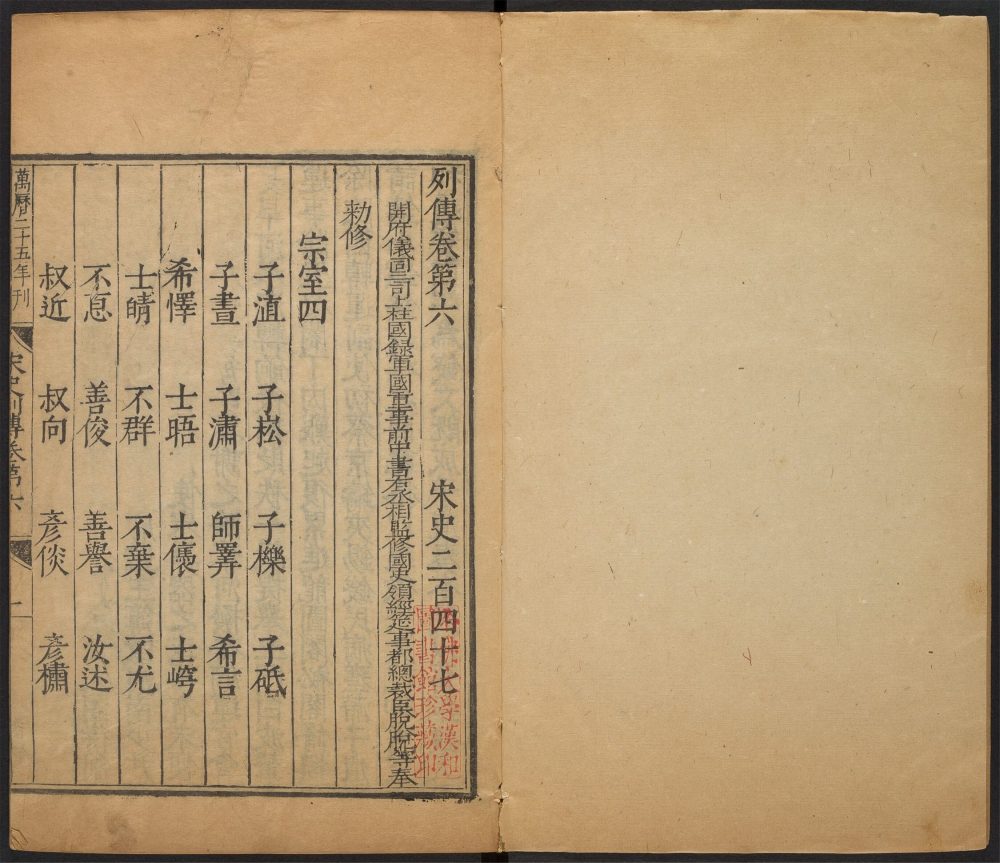 列傳卷第六 宋史二百四十七
開府儀同三司上柱國錄軍國重事前中書右丞相監修國史領經筵事都總裁臣脫脫等奉
勑修
宗室四
子淔 子崧 子櫟 子砥
子晝 子潚 師𢍰 希言
希懌 士㬇 士㒟 士㟧
士皘 不群 不棄 不尤
不悳 善俊 善譽 汝述
叔近 叔向 彥倓 彥橚
萬曆二十五年刊
宋史列傳卷第六 一
哈佛大學漢和
圖書館珍藏印